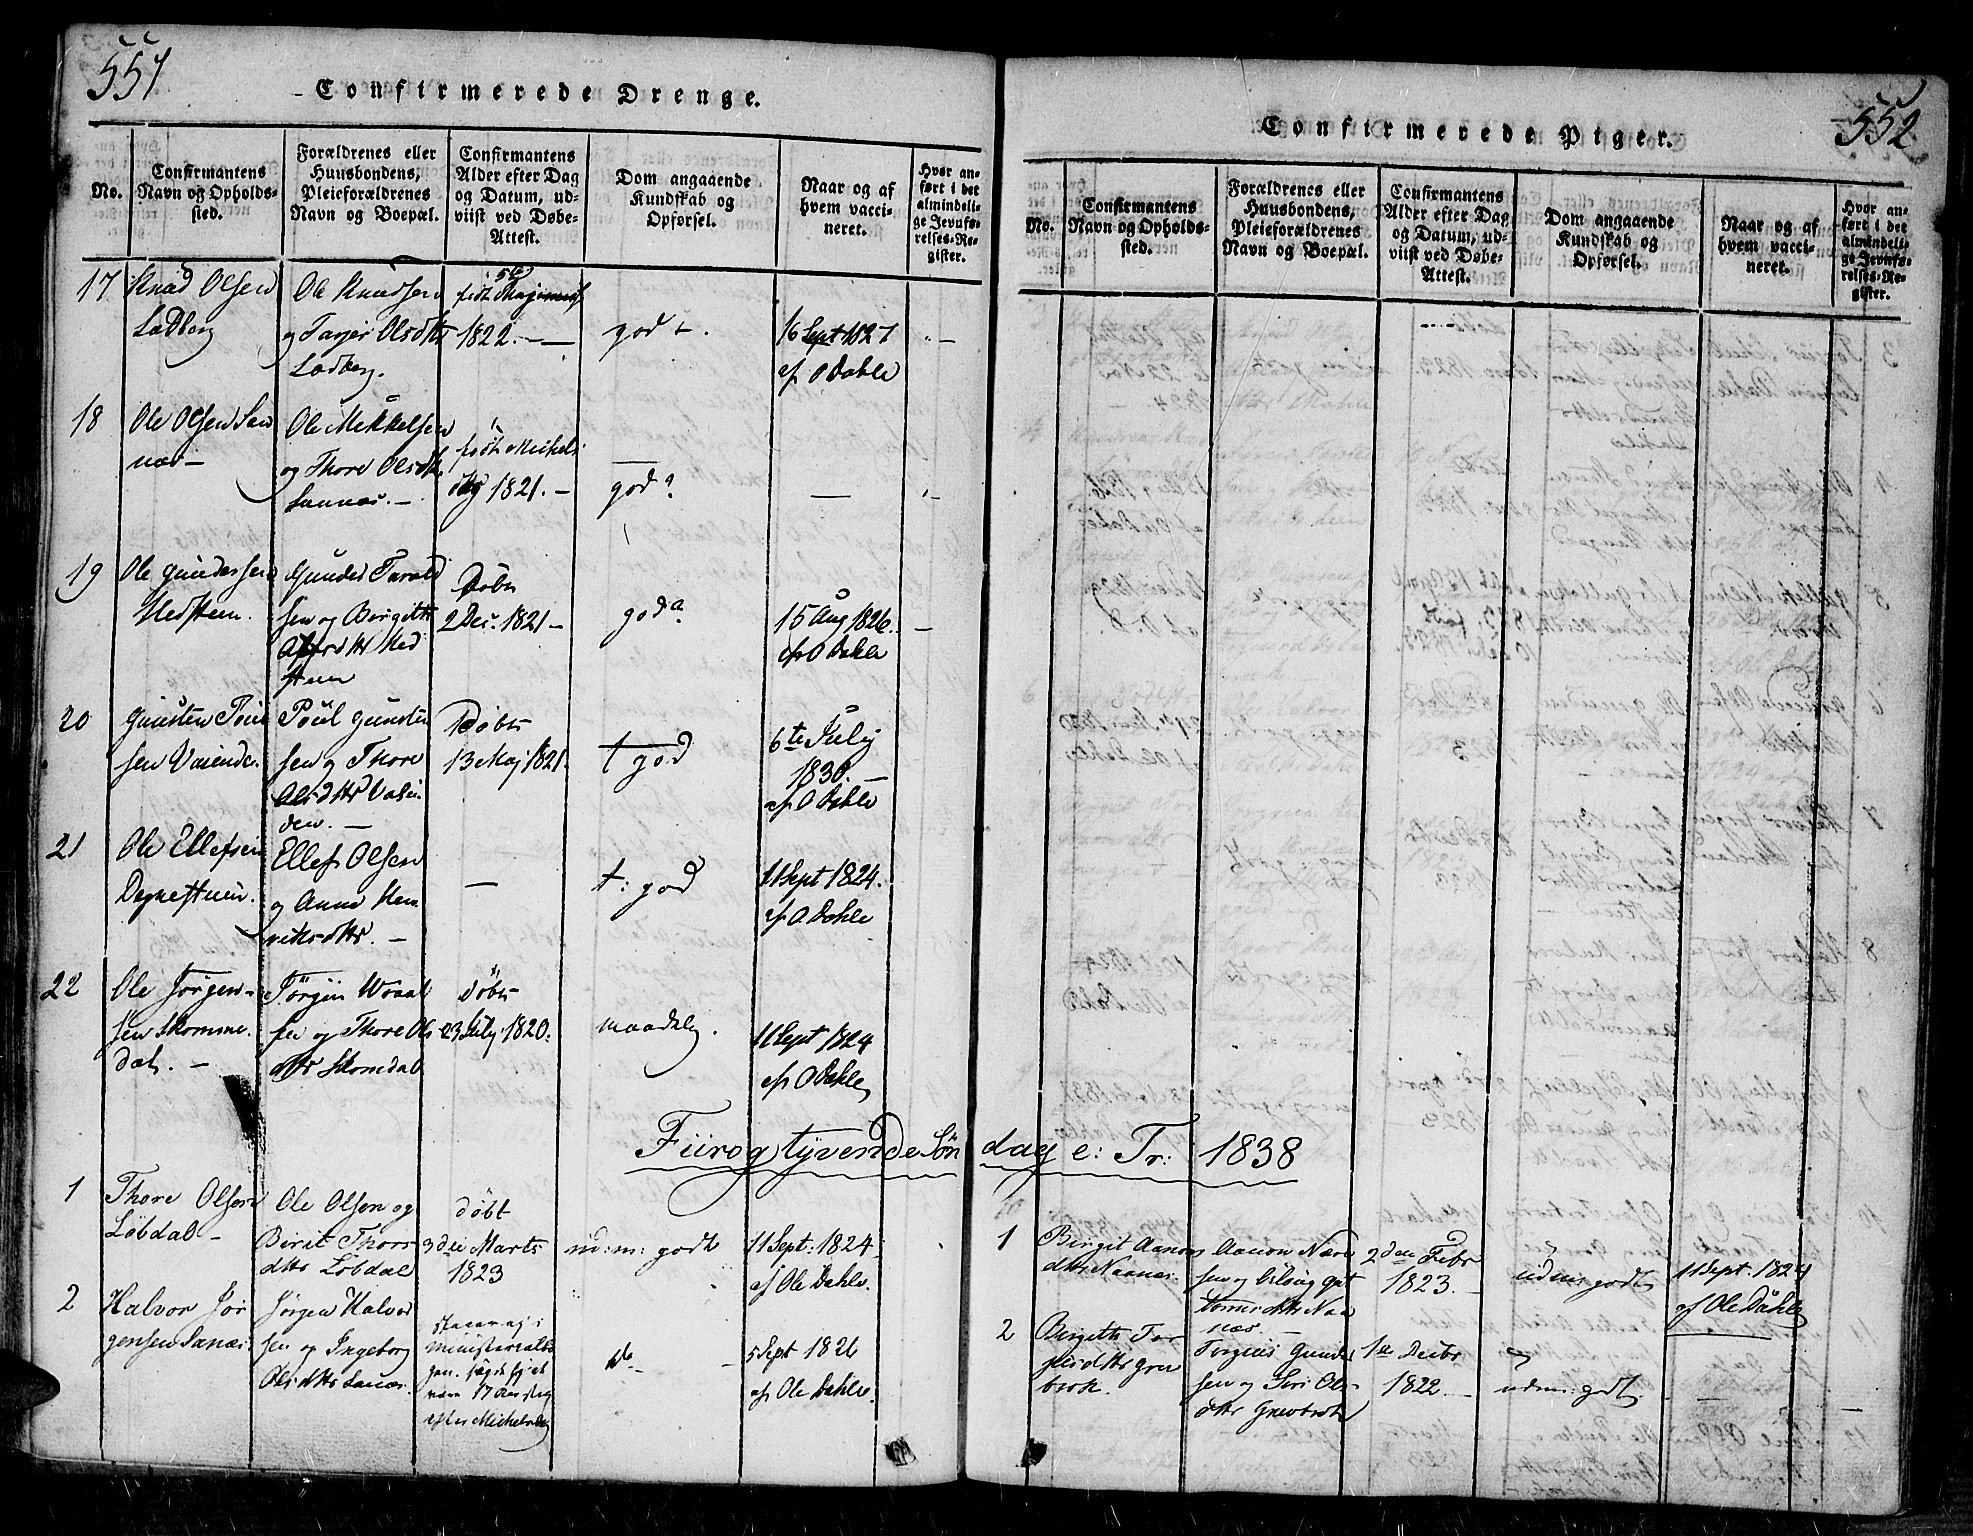 551
Confirmerede Drenge.
No.
Confirmantens Navn og Opholds-sted.
Forældrenes eller Huusbondens, Pleieforældrenes Navn og Boepæl.
Confirmantens Alder efter Dag og Datum, ud-viist ved Døbe-Attest.
Dom angaaende Kundskab og Opførsel.
Naar og af hvem vacci-neret.
Hvor an-ført i det almindeli-ge Jevnfø-relses-Re-gister.
17
Knud Olsen
Ladberg
Ole Knudsen
og Tarjer Olsdttr
Ladberg.
født
1822.
god
16 Sept 1827
af O Dahle
18
Ole Olsen San
næs
Ole Mikkelsen
og Thore Olsdtr.
Sannæs.
født Michels
dag 1821.
god
19
Ole Gundersen
Medsteen
Gunder Tarald
sen og Birgitte
Med
steen
Døbt
2 Dec. 1821
god
15 Aug 1826.
af O Dahle
20
Gunsten Poul
sen
Poul Gunsten
sen og Thore
Olsdttr Valen
den.
Døbt
13 Maj 1821.
t god
6te July
1830.
af O Dahle
21
Ole Ellefsen
Ellef Olsen
og Anne Hen
riksdttr.
t: god
11 Sept 1824.
af O Dahle
22
Ole Jørgen-
sen Skomme
dal.
Jörgen Woaal
sen og Thore Ols
dttr Skomdal
Døbt
23 July 1820.
maadelig.
11 Sept 1824
af O Dahle
Fiirogtyvende Søn dag e: Tr: 1838
1
Thore Olsen
Löbdal
Ole Olsen og
Birit Thors
dttr Löbdal
døbt
3die Marts
1823
ud: m: godt
11 Sept: 1824
af Ole Dahle.
2
Halvor Jör
gensen Sanæs
Jörgen Halvor
sen og Ingeborg
Olsdttr Sanæs.
ministerialb
gen. siges at
være 17 Aar
efter Michelsdag
do
5 Sept 1826
af Ole Dahle.
552
Confirmerede Piger.
No.
Confirmantens Navn og Opholds-sted.
Forældrenes eller Huusbondens, Pleieforældrenes Navn og Boepæl.
Confirmantens Alder efter Dag og Datum, ud-viist ved Døbe-Attest.
Dom angaaende Kundskab og Opførsel.
Naar og af hvem vacci-neret.
Hvor an-ført i det almindeli-ge Jevnfø-relses-Re-gister.
1
Birgit Aanons
dttr Naanæs.
Aanon Næri
sen og
dttr Naa
næs.
2den Febr
1823.
udm: godt
11 Sept: 1824
af Ole Dåhle
2
Birgitte Tor
gusdttr Grov
brok.
Torgius Gunder
sen og Siri Ols
dttr
1te Decbr
1822.
udm: godt.